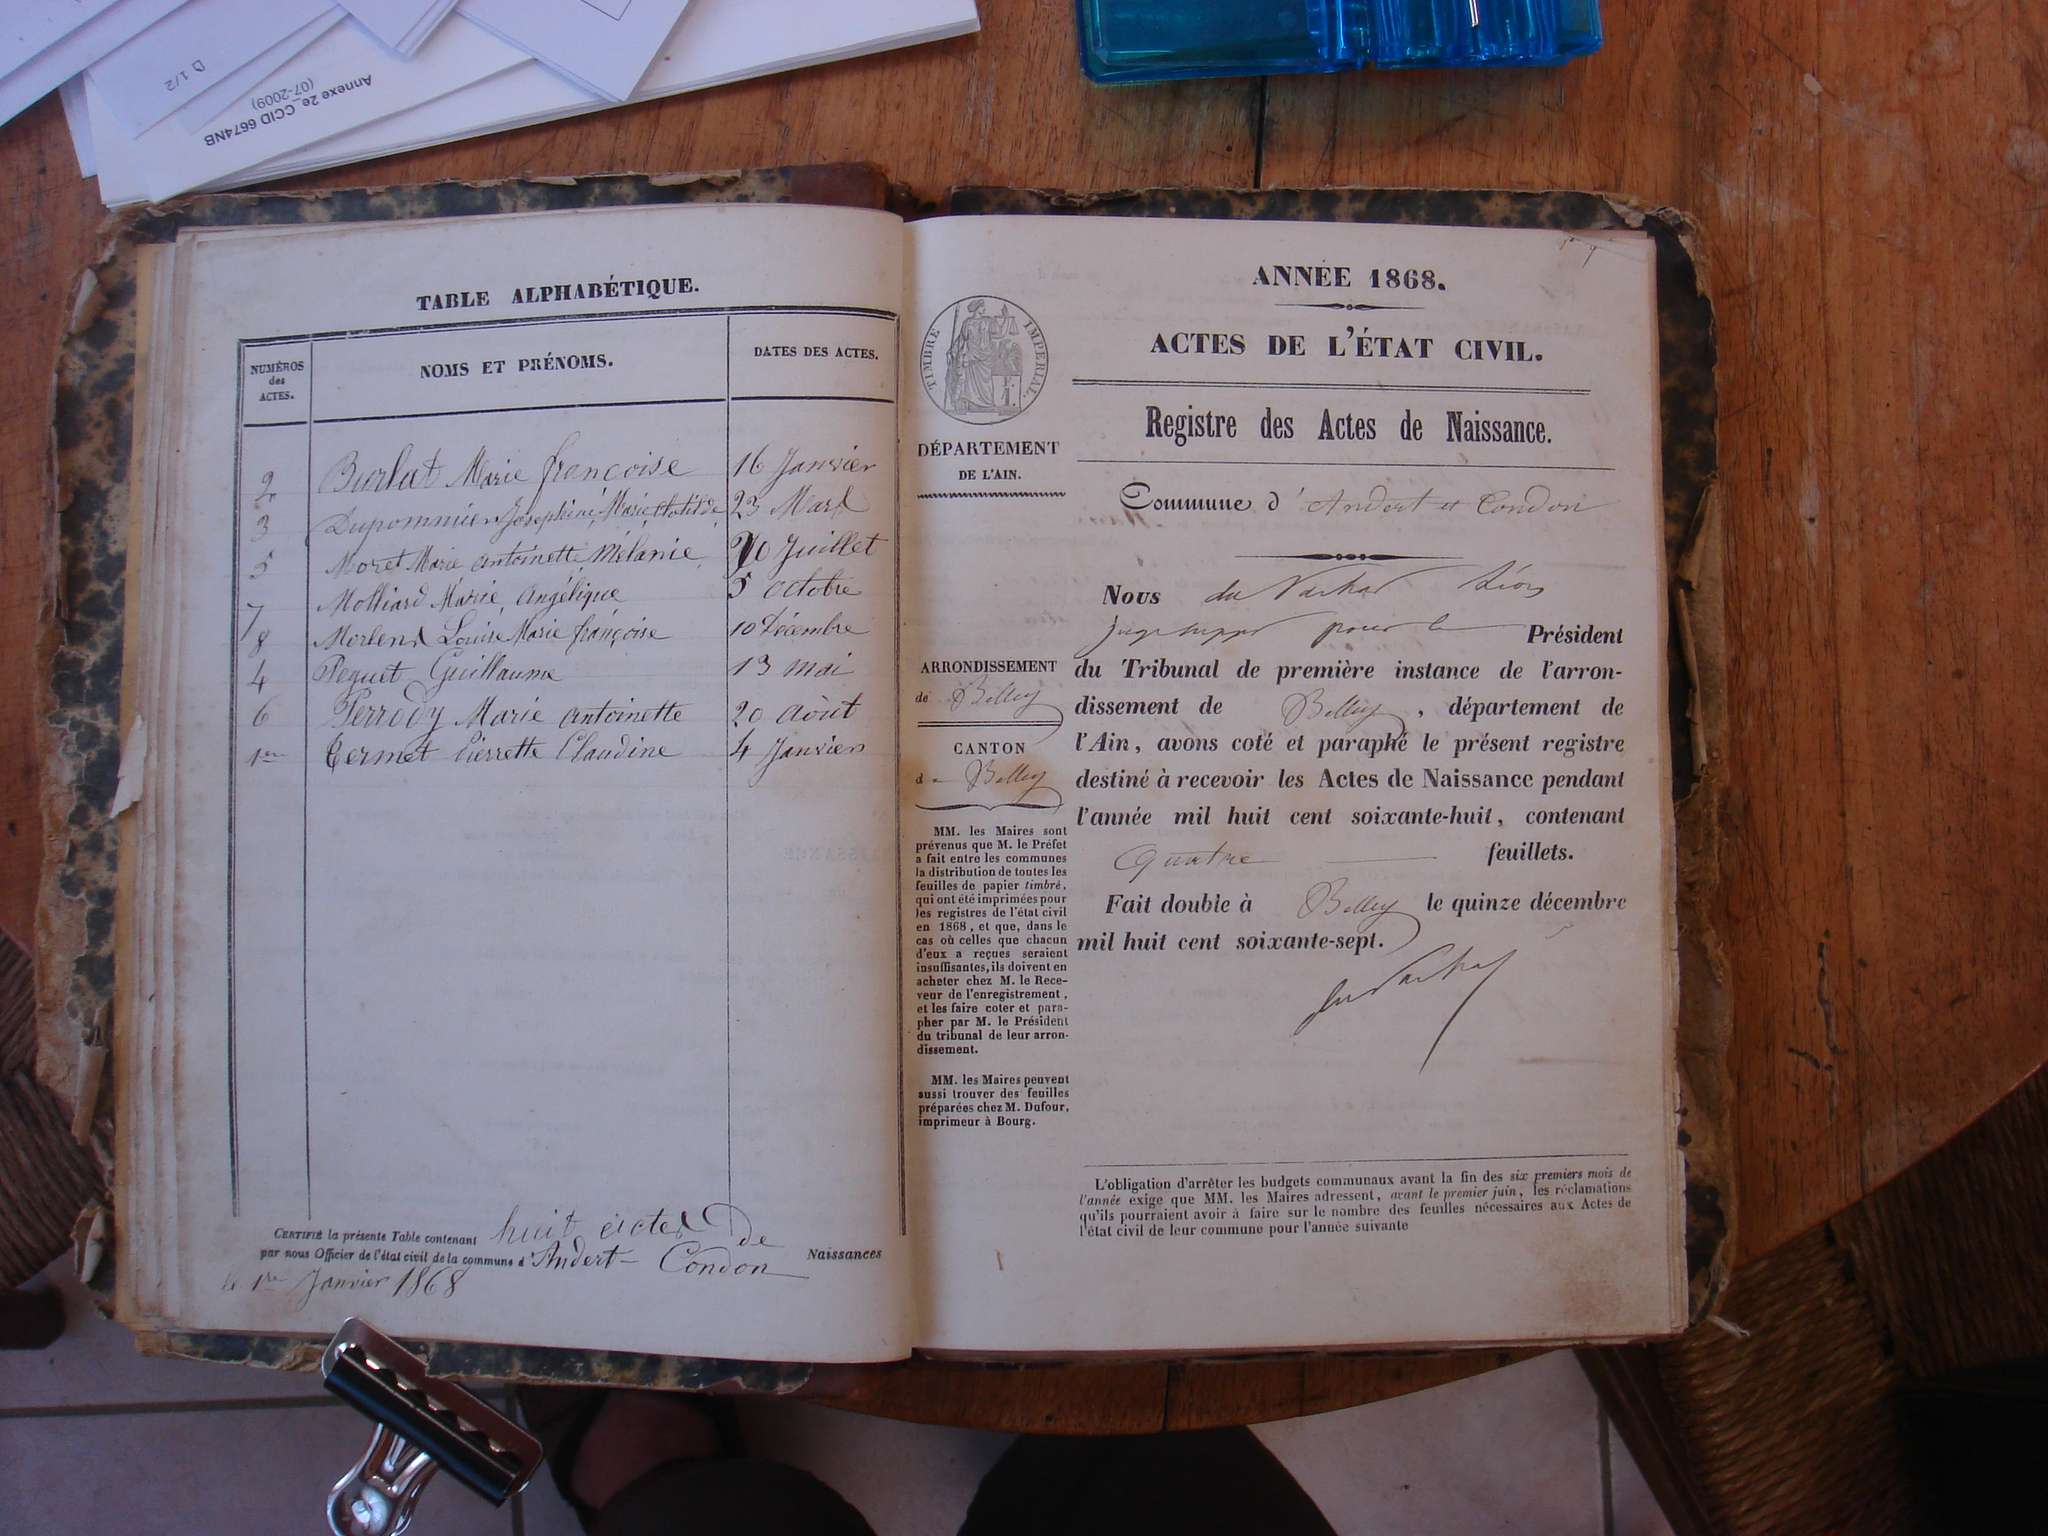 D 1/2
Annexe 2e_CCID 6674NB
(07-2009)
TABLE ALPHABÉTIQUE.
NUMÉROS des ACTES. NOMS ET PRÉNOMS. DATES DES ACTES.
2 Burlat Marie françoise 16 Janvier
3 Dupommier Joséphine Marie Clotilde 23 Mars
5 Moret Marie antoinette Mélanie 20 Juillet
7 Molliard Marie Angélique 5 octobre
8 Morlend Louise Marie françoise 10 Décembre
4 Peguet Guillaume 13 mai
6 Perrody Marie antoinette 20 Août
1er Termet Pierrette Claudine 4 Janvier
CERTIFIÉ la présente Table contenant huit actes De Naissances
par nous Officier de l'état civil de la commune d'Andert-Condon
le 1re Janvier 1868
TIMBRE IMPERIAL.
DÉPARTEMENT
DE L'AIN.
ARRONDISSEMENT
de Belley
CANTON
de Belley
MM. les Maires sont
prévenus que M. le Préfet
a fait entre les communes
la distribution de toutes les
feuilles de papier timbré,
qui ont été imprimées pour
les registres de l'état civil
en 1868, et que, dans le
cas où celles que chacun
d'eux a reçues seraient
insuffisantes, ils doivent en
acheter chez M. le Rece-
veur de l'enregistrement,
et les faire coter et para-
pher par M. le Président
du tribunal de leur arron-
dissement.
MM. les Maires peuvent
aussi trouver des feuilles
préparées chez M. Dufour,
imprimeur à Bourg.
ANNÉE 1868.
ACTES DE L'ÉTAT CIVIL.
Registre des Actes de Naissance.
Commune d'Andert et Condon
Nous
pour le Président
du Tribunal de première instance de l'arron-
dissement de Belley, département de
l'Ain, avons coté et paraphé le présent registre
destiné à recevoir les Actes de Naissance pendant
l'année mil huit cent soixante-huit, contenant
quatre feuillets.
Fait double à Belley le quinze décembre
mil huit cent soixante-sept.
L'obligation d'arrêter les budgets communaux avant la fin des six premiers mois de
l'année exige que MM. les Maires adressent, avant le premier juin, les réclamations
qu'ils pourraient avoir à faire sur le nombre des feuilles nécessaires aux Actes de
l'état civil de leur commune pour l'année suivante